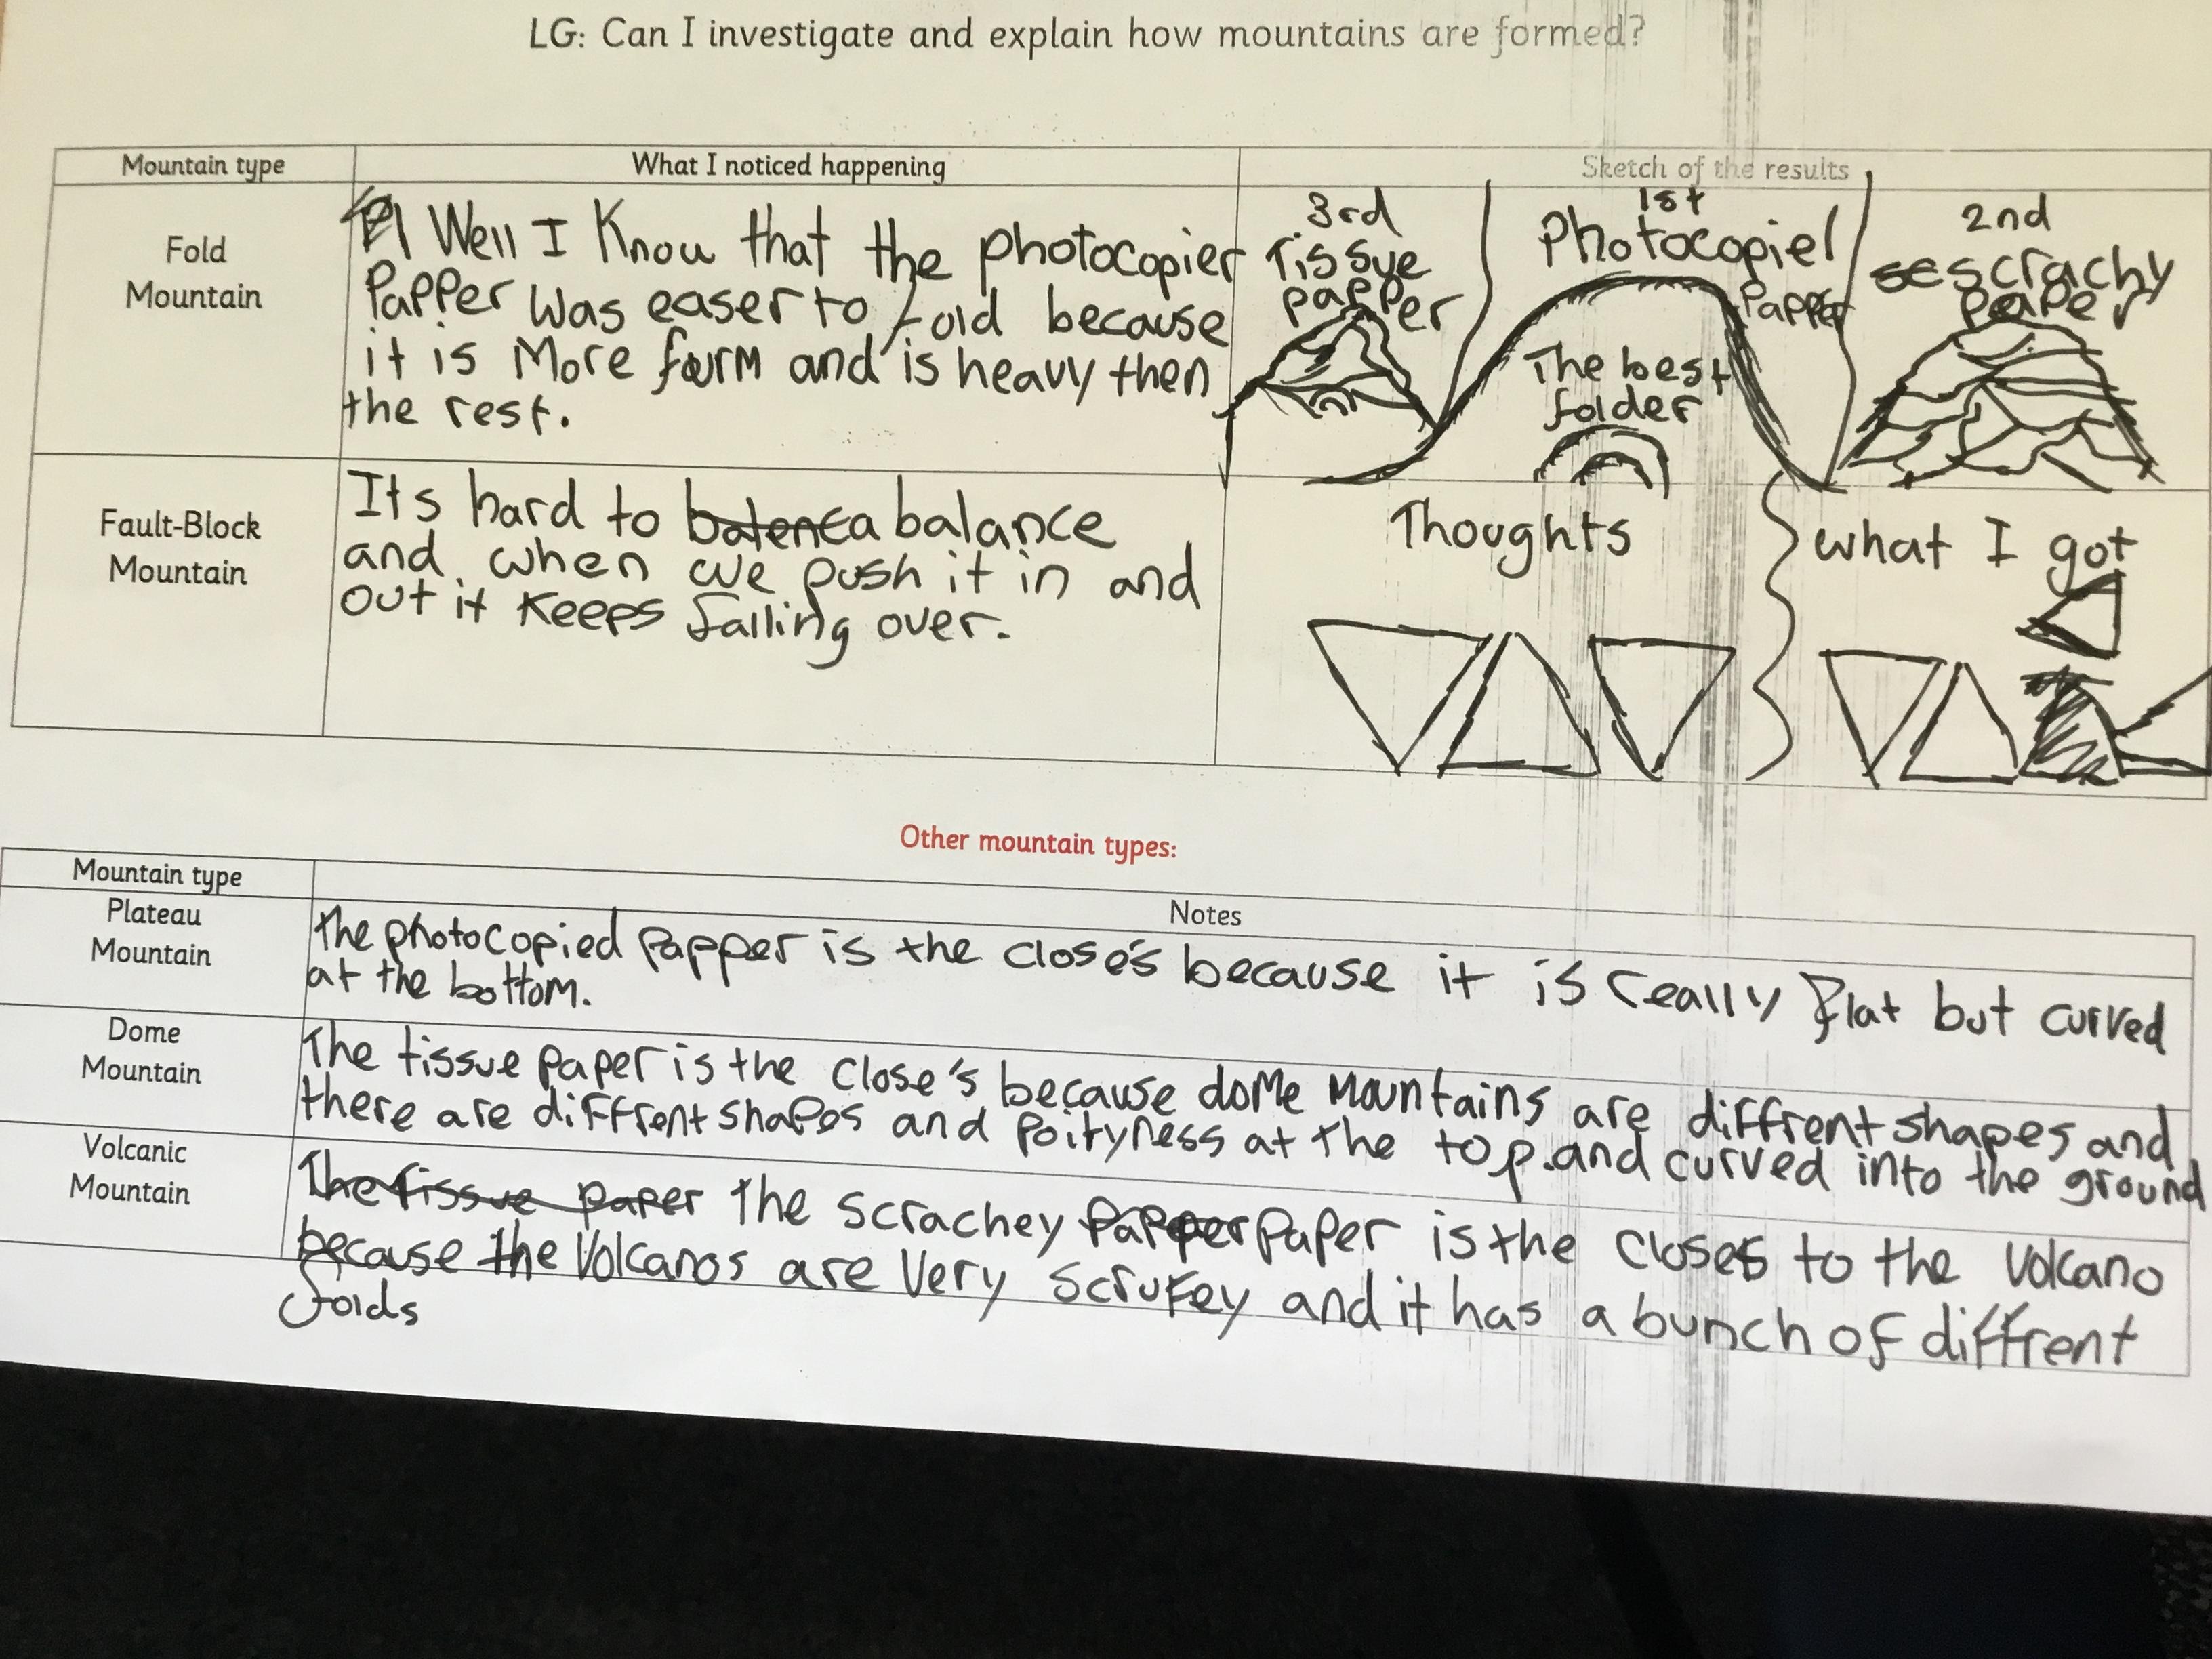 LG: Can I investigate and explain how mountains are formed?
Mountain type
What I noticed happening
Sketch of the results
Fold
Mountain
Well I Know that the photocopier
Papper was easer to fold because
it is More farm and is heavy then
the rest.
3rd
Tissue
papper
1st
Photocopiel
Papper
The best
folder
2nd
scrachy
paper
Fault-Block
Mountain
Its hard to balance
and when we push it in and
out it keeps falling over.
Thoughts
what I got
Other mountain types:
Mountain type
Notes
Plateau
Mountain
The photocopied papper is the close's because it is really flat but curved
at the bottom.
Dome
Mountain
The tissue paper is the close's because dome mountains are diffrent shapes and
there are diffrent shapes and poityness at the top.and curved into the ground
Volcanic
Mountain
The tissue paper the scrachey paper is the closes to the volcano
because the volcanos are very scrufey and it has a bunch of diffrent
folds